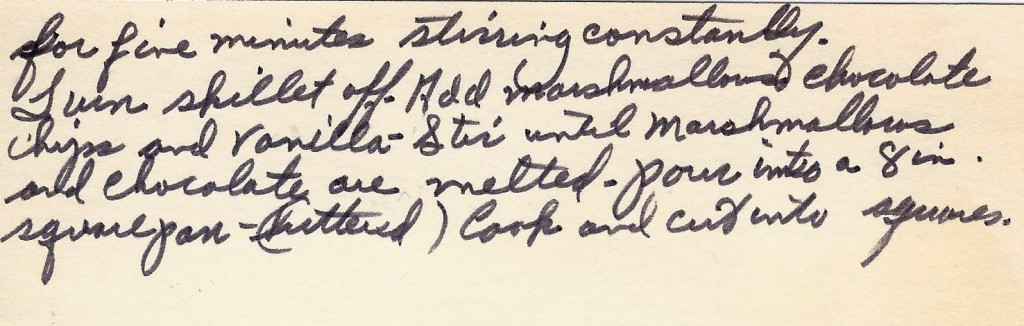 for five minutes stirring constantly.
Turn skillet off. Add marshmallows, chocolate
chips and vanilla - Stir until marshmallows
and chocolate are melted - pour into a 8 in.
square pan - (buttered) Cook and cut into squares.